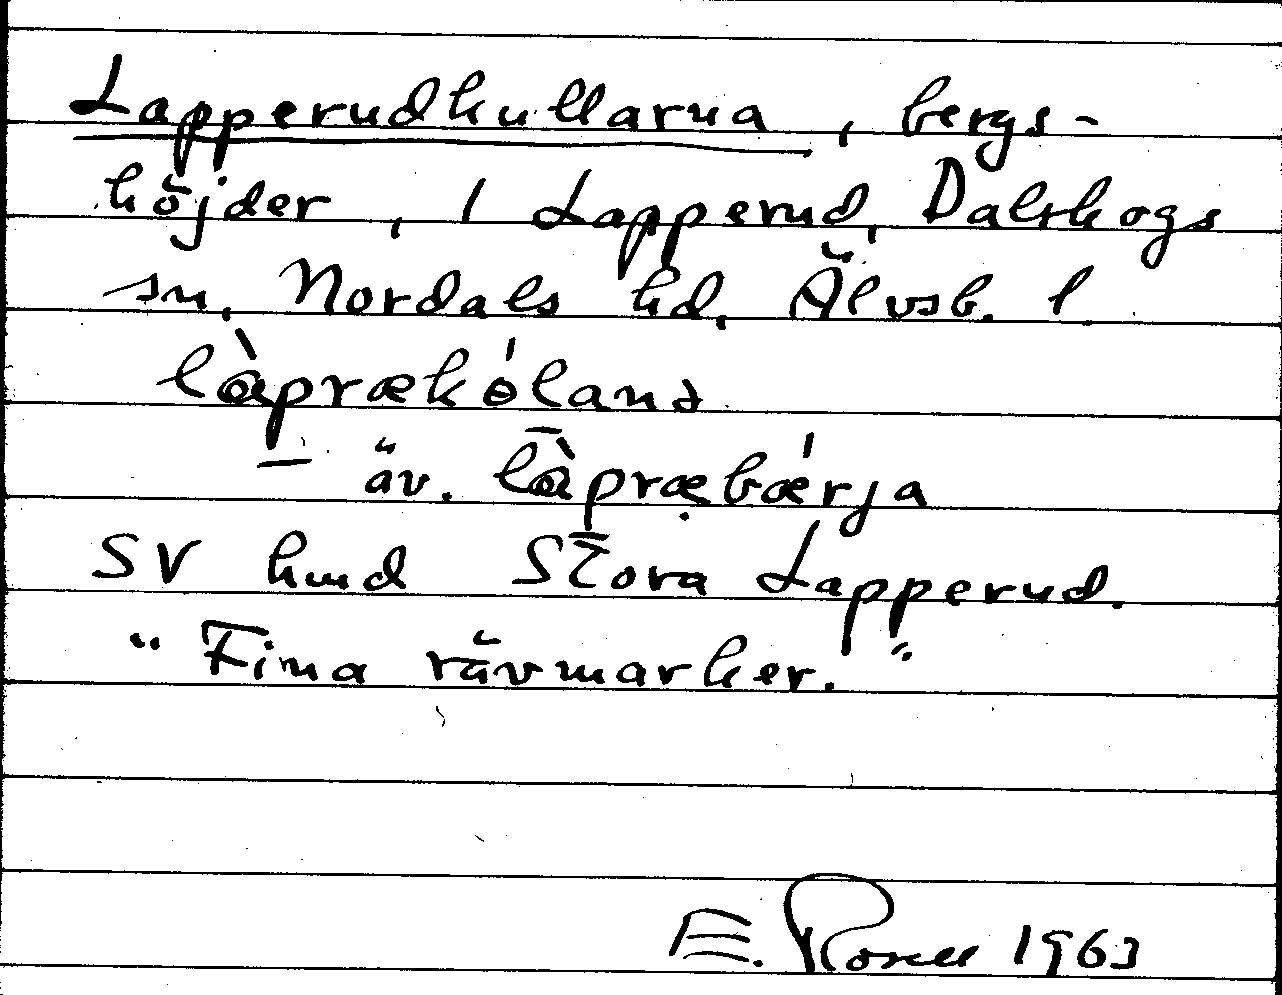 Lapperudkullarna, bergs-
höjder, 1 Lapperud, Dalskogs
sn, Nordals hd, Älvsb. l
là̱prækɵ́lanə
— äv. là̱præbǽrja
SV hmd Stora Lapperud.
"Fina rävmarker."
E. Rosell 1963